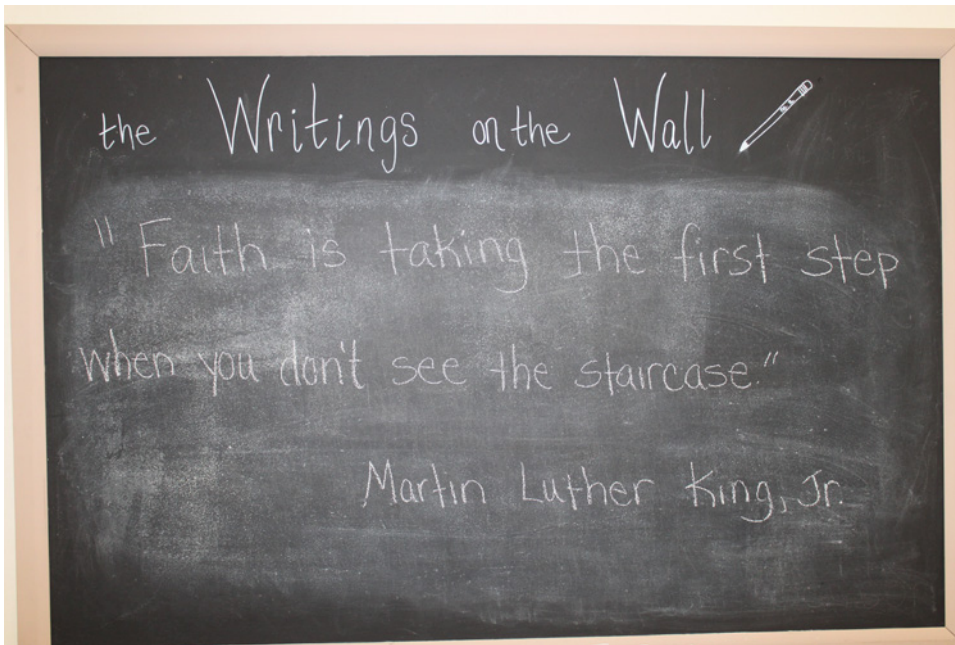 the Writings on the Wall
"Faith is taking the first step
when you don't see the staircase."
Martin Luther King, Jr.